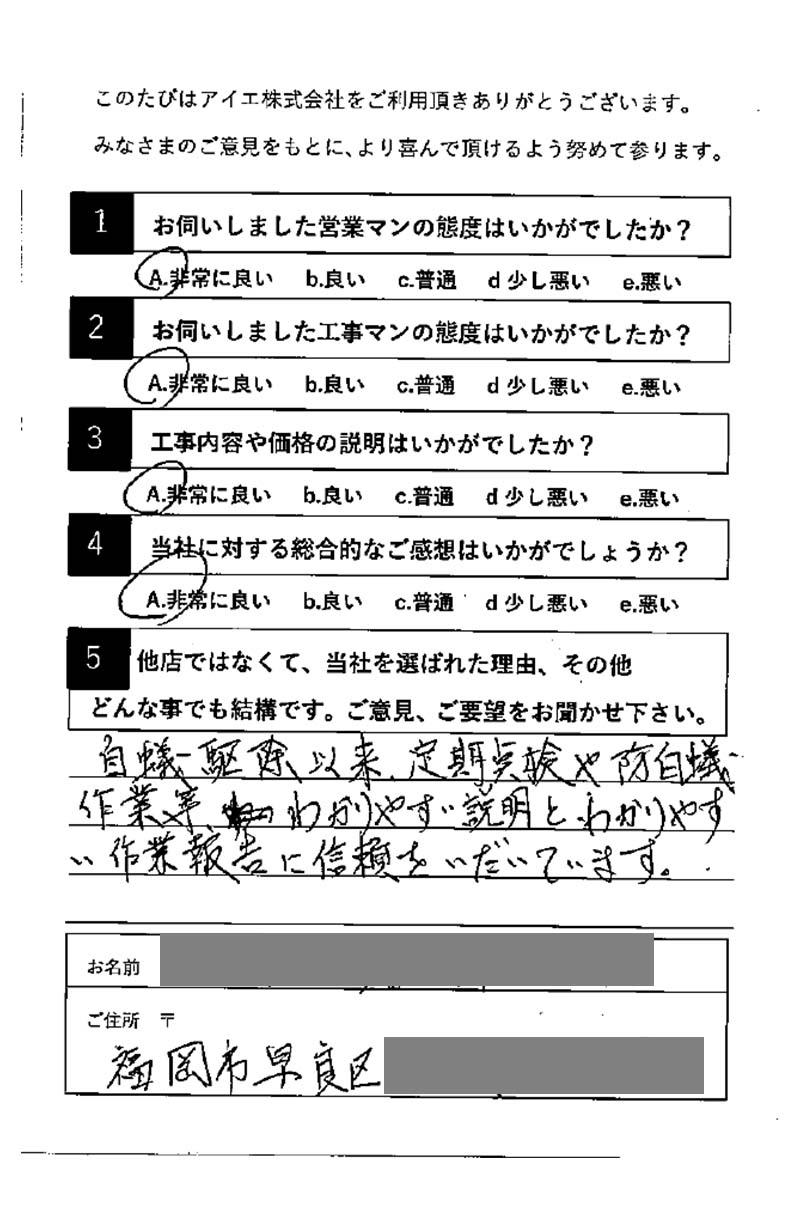 このたびはアイエ株式会社をご利用頂きありがとうございます。
みなさまのご意見をもとに、より喜んで頂けるよう努めて参ります。
1 お伺いしました営業マンの態度はいかがでしたか?
A.非常に良い b.良い c.普通 d 少し悪い e.悪い
2 お伺いしました工事マンの態度はいかがでしたか?
A.非常に良い b.良い c.普通 d 少し悪い e.悪い
3 工事内容や価格の説明はいかがでしたか?
A.非常に良い b.良い c.普通 d 少し悪い e.悪い
4 当社に対する総合的なご感想はいかがでしょうか?
A.非常に良い b.良い c.普通 d 少し悪い e.悪い
5 他店ではなくて、当社を選ばれた理由、その他
どんな事でも結構です。ご意見、ご要望をお聞かせ下さい。
白蟻駆除以来、定期点検や防白蟻
作業等、わかりやすい説明とわかりやす
い作業報告に信頼をいだいています。
お名前
ご住所 〒
福岡市早良区